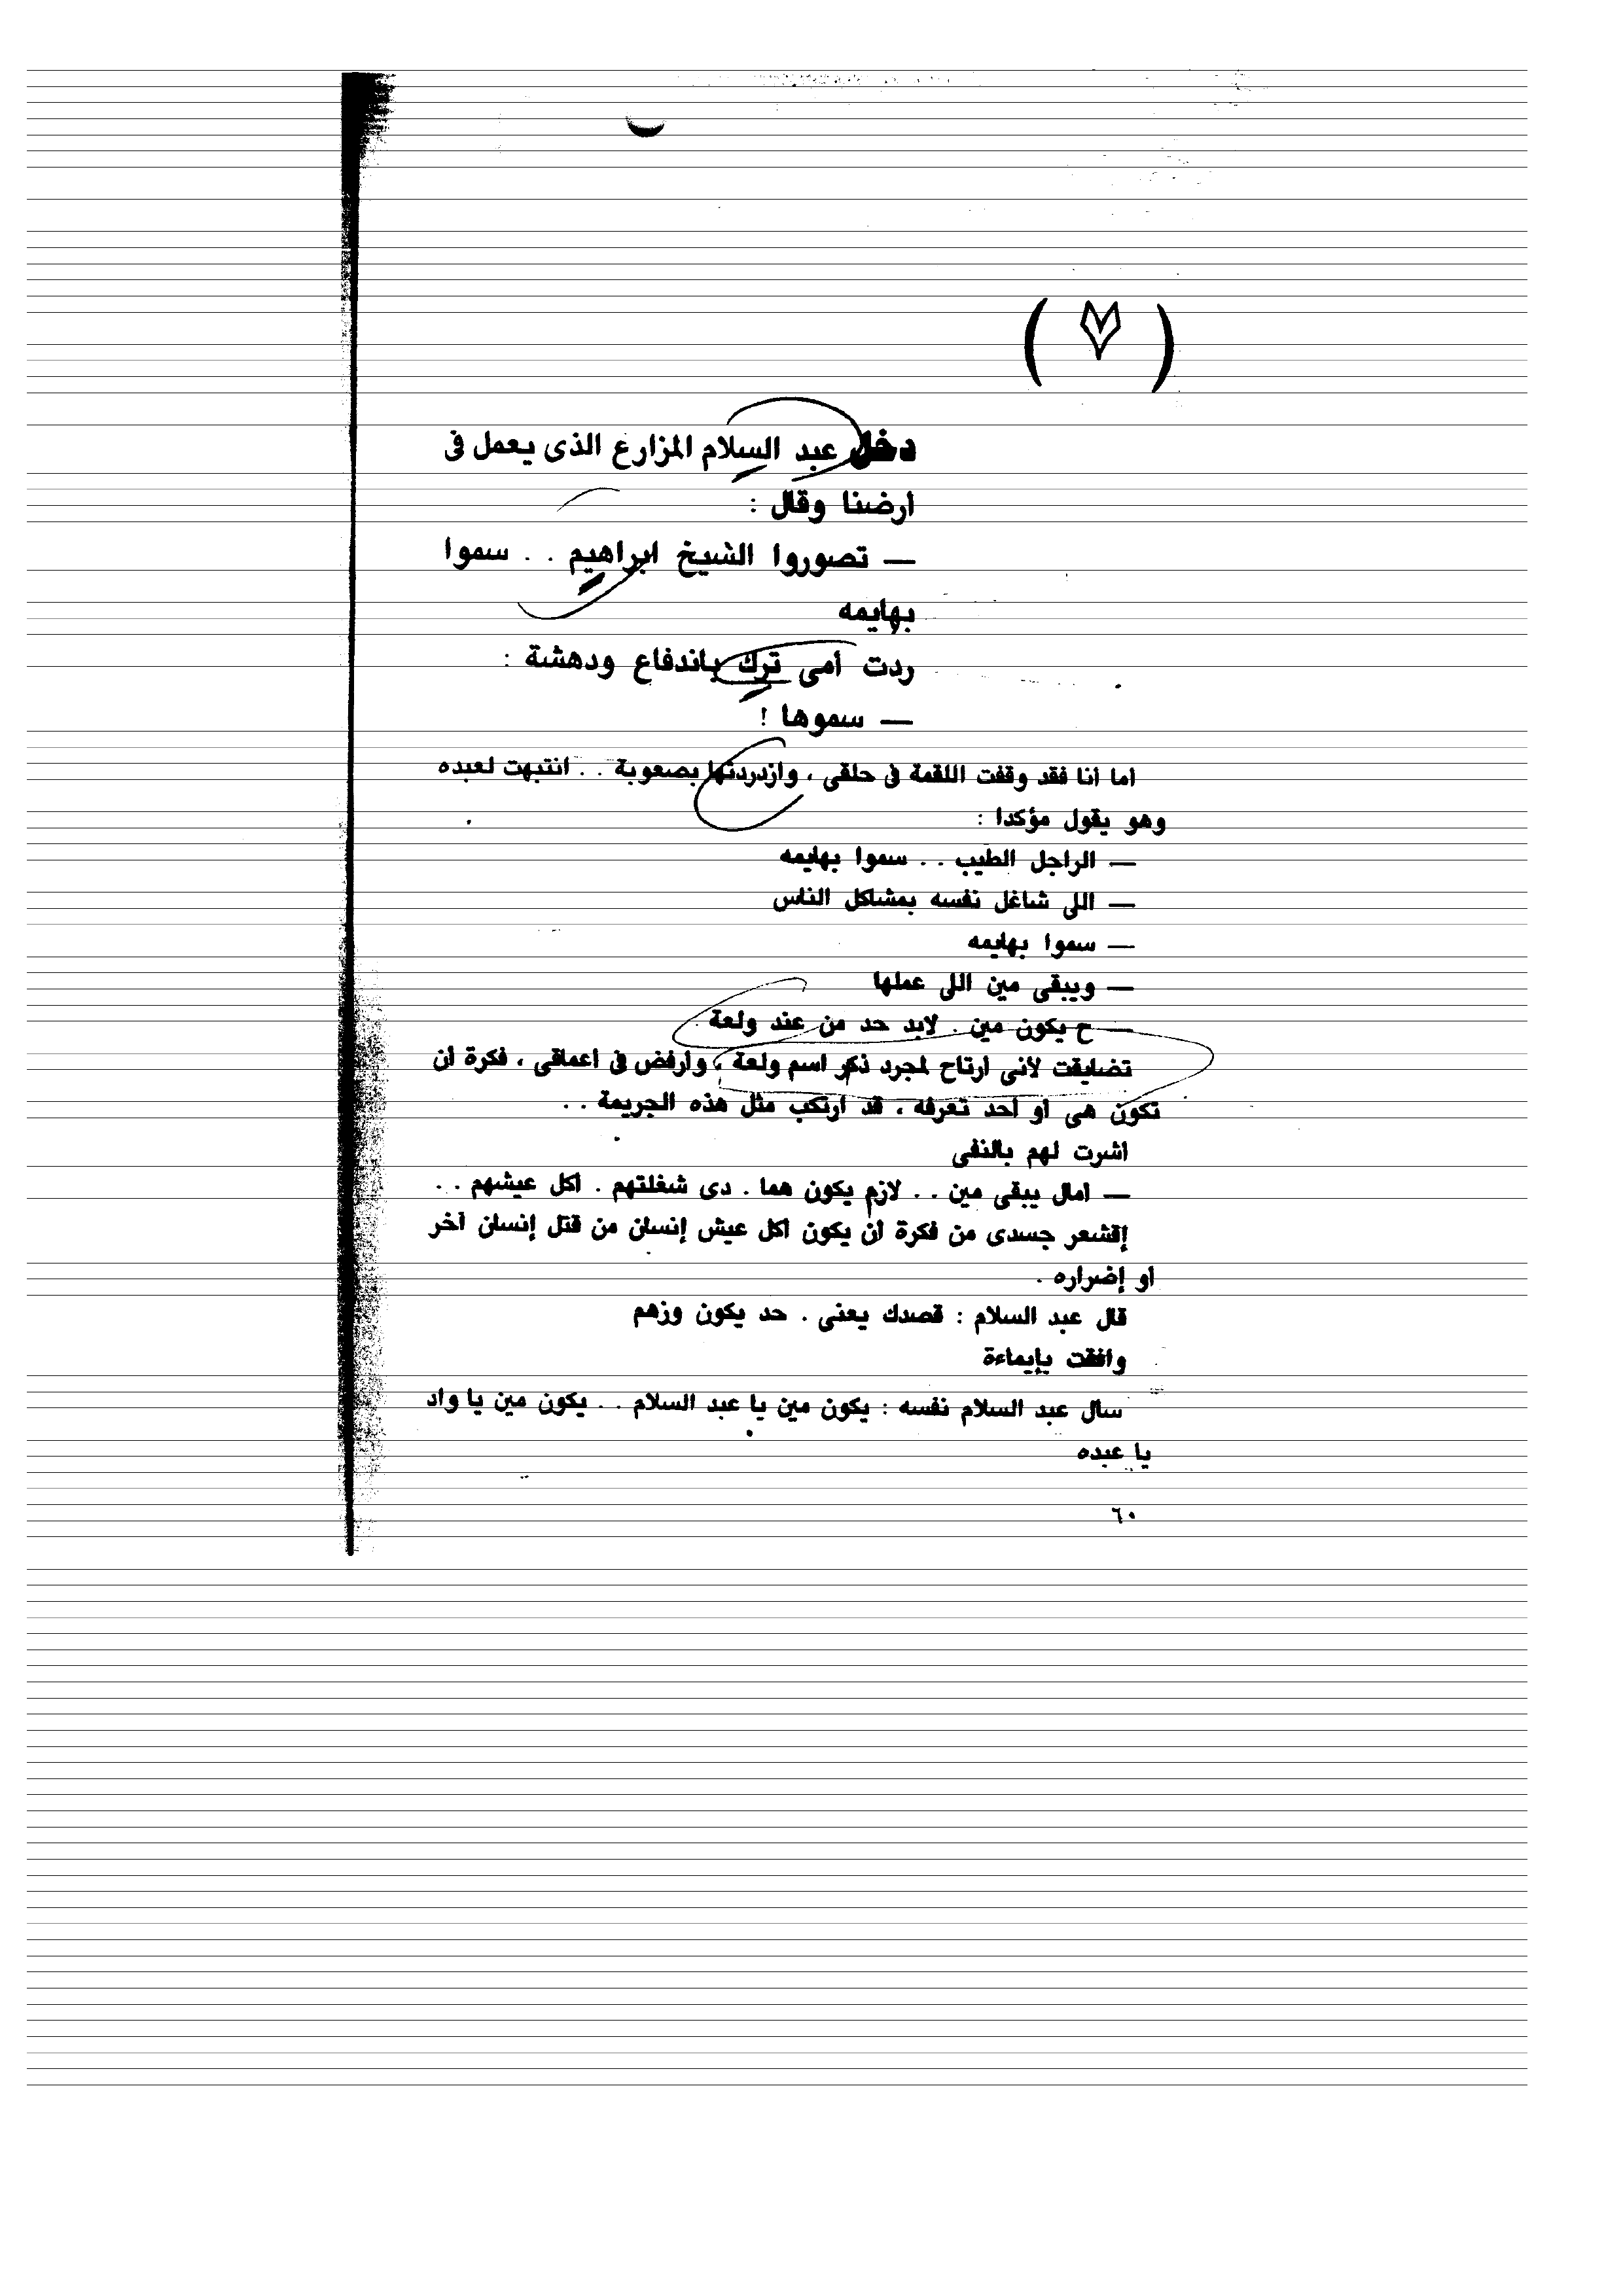 ( ٧ )
دخل عبد السلام المزارع الذى يعمل فى
ارضنا وقال :
— تصوروا الشيخ ابراهيم . . سموا
بهايمه
ردت أمى ترك باندفاع ودهشة :
— سموها !
أما أنا فقد وقفت اللقمة فى حلقى ، وازدردتها بصعوبة . . انتبهت لعبده
وهو يقول مؤكدا :
— الراجل الطيب . . سموا بهايمه
— اللى شاغل نفسه بمشاكل الناس
— سموا بهايمه
— ويبقى مين اللى عملها
— ح يكون مين . لابد حد من عند ولعة .
تضايقت لأنى ارتاح لمجرد ذكر اسم ولعة ، وأرفض فى أعماقى ، فكرة أن
تكون هى أو أحد تعرفه ، قد ارتكب مثل هذه الجريمة . .
أشرت لهم بالنفى
— امال يبقى مين . . لازم يكون هما . دى شغلتهم . اكل عيشهم . .
إقشعر جسدى من فكرة أن يكون أكل عيش إنسان من قتل إنسان آخر
أو إضراره .
قال عبد السلام : قصدك يعنى . حد يكون وزهم
وافقت بإيماءة
سأل عبد السلام نفسه : يكون مين يا عبد السلام . . يكون مين يا واد
يا عبده
٦٠